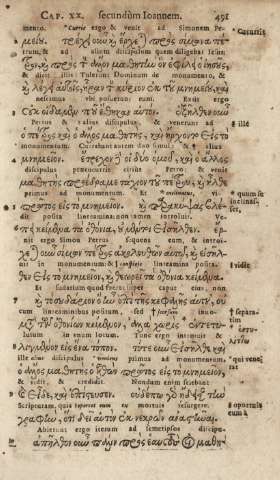 CAP. XX. secundùm Ioannem. 491
mento. Currit ergo & venit ad Simonem Pe-
μείου. τρέχει οὖν, καὶ ἔρχεται πρὸς σίμωνα πέ-
trum, & ad alium discipulum quem diligebat Iesus,
τρον, καὶ πρὸς τὸν ἄλλον μαθητὴν ὃν ἐφίλει ὁ ἰησοῦς,
& dicit illis Tulerunt Dominum de monumento, &
καὶ λέγει αὐτοῖς, ἦραν τὸν κύριον ἐκ τοῦ μνημείου, καὶ
nescimus vbi posuerunt eum. Exiit ergo
οὐκ οἴδαμεν ποῦ ἔθηκαν αὐτόν. ἐξῆλθεν οὖν
Petrus & alius discipulus, & venerunt ad
ὁ πέτρος καὶ ὁ ἄλλος μαθητὴς, καὶ ἤρχοντο εἰς τὸ
monumentum. Currebant autem duo simul, & alius
μνημεῖον. ἔτρεχον δὲ οἱ δύο ὁμοῦ, καὶ ὁ ἄλλος
discipulus præcucurrit citius Petro, & venit
μαθητὴς προέδραμε τάχιον τοῦ πέτρου, καὶ ἦλθε
primus ad monumentum.
πρῶτος εἰς τὸ μνημεῖον. καὶ παρακύψας βλέ-
posita linteamina non tamen introiuit. Ve-
πει κείμενα τὰ ὀθόνια, οὐ μέντοι εἰσῆλθεν.
nit ergo Simon Petrus sequens eum, & introi-
ἔρχεται οὖν σίμων πέτρος ἀκολουθῶν αὐτῷ, καὶ εἰσῆλ-
in monumentum & linteamina posita,
θεν εἰς τὸ μνημεῖον, καὶ θεωρεῖ τὰ ὀθόνια κείμενα.
Et sudarium quod fuerat super caput eius, non
καὶ τὸ σουδάριον ὃ ἦν ἐπὶ τῆς κεφαλῆς αὐτοῦ, οὐ
cum linteaminibus positum, sed inuo-
μετὰ τῶν ὀθονίων κείμενον, ἀλλὰ χωρὶς ἐντετυ-
lutum in vnum locum. Tunc ergo introiuit &
λιγμένον εἰς ἕνα τόπον. τότε οὖν εἰσῆλθε καὶ
ille discipulus primus ad monumentum,
ὁ ἄλλος μαθητὴς ὁ ἐλθὼν πρῶτος εἰς τὸ μνημεῖον,
& vidit, & credidit. Nondum enim sciebant
καὶ εἶδε, καὶ ἐπίστευσεν. οὐδέπω γὰρ ᾔδεισαν τὴν
Scripturam, quia eum à mortuis resurgere.
γραφὴν, ὅτι δεῖ αὐτὸν ἐκ νεκρῶν ἀναστῆναι.
Abierunt ergo iterum ad semetipsos discipu-
ἀπῆλθον οὖν πάλιν πρὸς ἑαυτοὺς οἱ μαθη-